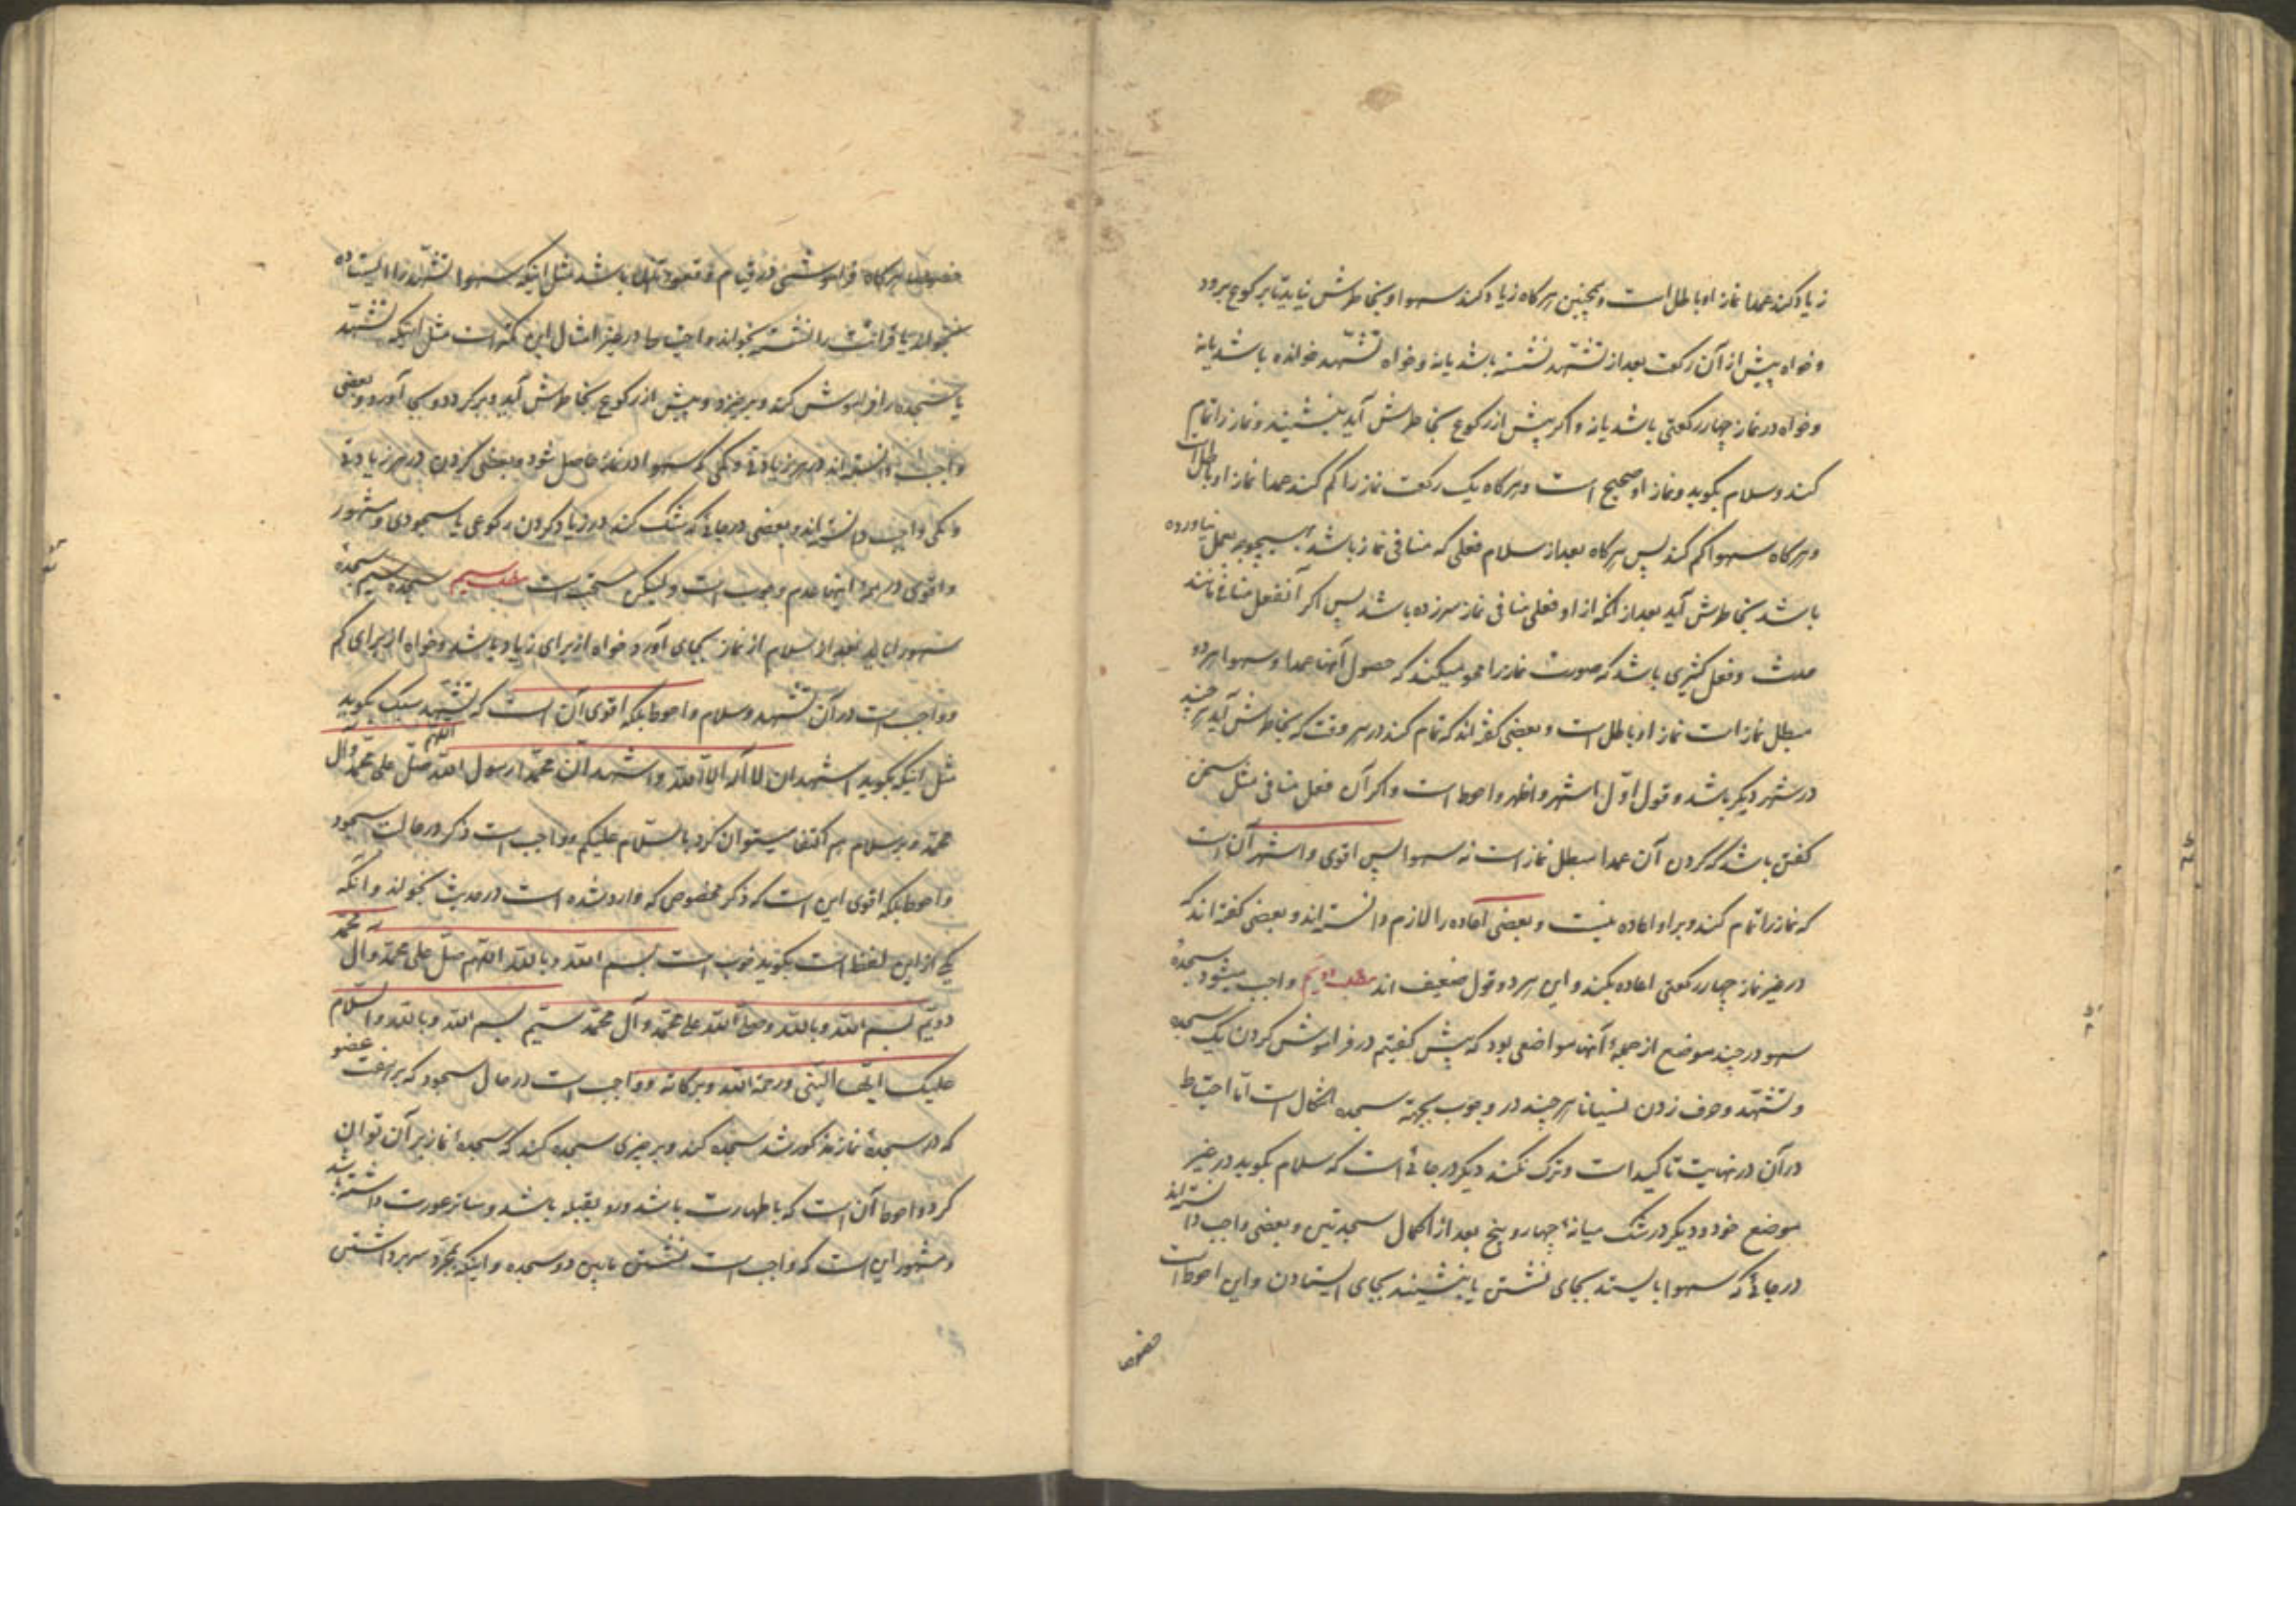 زیاد کند عمدا نماز او باطل است و همچنین هرگاه زیاد کند سهوا و بخاطرش نیاید تا برکوع برود
و خواه پیش از آن رکعت بعد از تشهّد نشسته باشد یا نه و خواه تشهّد خوانده باشد یا نه
و خواه در نماز چهار رکعتی باشد یا نه و اگر پیش از رکوع بخاطرش آید بنشیند و نماز را تمام
کند و سلام بگوید و نماز او صحیح است و هرگاه یک رکعت نماز را کم کند عمدا نماز او باطل است
و هرگاه سهوا کم کند پس هرگاه بعد از سلام فعلی که منافی نماز باشد بعمل نیاورده
باشد بخاطرش آید بعد از آنکه از او فعلی منافی نماز سرزده باشد پس اگر آنفعل منافی مانند
حدث و فعل کثیری باشد که صورت نماز را محو میکند که حصول آنها عمدا و سهوا هر دو
مبطل نماز است نماز او باطل است و بعضی گفته‌اند که تمام کند در هر وقت که بخاطرش آید هر چند
در شهر دیگر باشد و قول اوّل اشهر و اظهر و احوط است و اگر آن فعل منافی مثل سخن
گفتن باشد که کردن آن عمدا مبطل نماز است نه سهوا پس اقوی و اشهر آن است
که نماز را تمام کند و بر او اعاده نیست و بعضی اعاده را لازم دانسته‌اند و بعضی گفته‌اند که
در غیر نماز چهار رکعتی اعاده بکند و این هر دو قول ضعیف‌اند مطلب دویم واجب میشود سجدهٔ
سهو در چند موضع از جملهٔ آنها مواضعی بود که پیش گفتیم در فراموش کردن یک سجده
و تشهّد و حرف زدن نسیانا هر چند در وجوب بجهته سجده اشکال است اما احتیاط
در آن در نهایت تاکید است و ترک نکند دیگر در جائی است که سلام بگوید در غیر
موضع خود و دیگر در شک میانهٔ چهار و پنج بعد از اکمال سجدتین و بعضی واجب دانسته‌اند
در جائی که سهوا بایستد بجای نشستن یا بنشیند بجای ایستادن و این احوط است
خصوصا
خصوصا هرگاه فراموشی در قیام و قعود باشد مثل اینکه سهوا تشهّد را ایستاده
بخواند یا قرائت را نشسته بخواند و احتیاط در غیر امثال این کمتر است مثل اینکه تشهّد
یا سجده را فراموش کند و برخیزد و پیش از رکوع بخاطرش آید و برگردد و بجا آورد و بعضی
واجب دانسته‌اند در هر زیادتی و کمی که سهوا در نماز حاصل شود و بعضی در هر زیادتی
و کمی واجب دانسته‌اند و بعضی در جائی که شک کند در زیاد کردن رکوعی یا سجودی و مشهور
و اقوی در همهٔ اینها عدم وجوب است و لیکن مستحب است مطلب سیم سجدهٔ
سهو را باید بعد از سلام از نماز بجای آورد خواه از برای زیاد باشد و خواه از برای کم
و واجب است در آن تشهد و سلام و احوط بلکه اقوی آن است که تشهّد سبک بگوید
مثل اینکه بگوید اشهد ان لا اله الا الله و اشهد انّ محمّدا رسول الله اللهم صلّ علی محمّد و آل
محمّد و بر سلام هم اکتفا میتوان کرد بالسّلام علیکم و واجب است ذکر در حالت سجود
و احوط بلکه اقوی این است که ذکر مخصوص که وارد شده است در حدیث بخواند و آنکه
یکی از این لفظها است بگوید خوب است بسم الله و بالله اللهم صلّ علی محمّد و آل محمّد
دویّم بسم الله و بالله و صلّی الله علی محمّد و آل محمّد سیّم بسم الله و بالله و السّلام
علیک ایّها النّبی و رحمة الله و برکاته و واجب است در حال سجود که بر هفت عضو
که در سجدهٔ نماز مذکور شد سجده کند و بر چیزی سجده کند که سجدهٔ نماز بر آن توان
کرد و احوط آن است که با طهارت باشد و رو بقبله باشد و ساتر عورت داشته باشد
و مشهور این است که واجب است نشستن مابین دو سجده و اینکه بمجرّد سر برداشتن